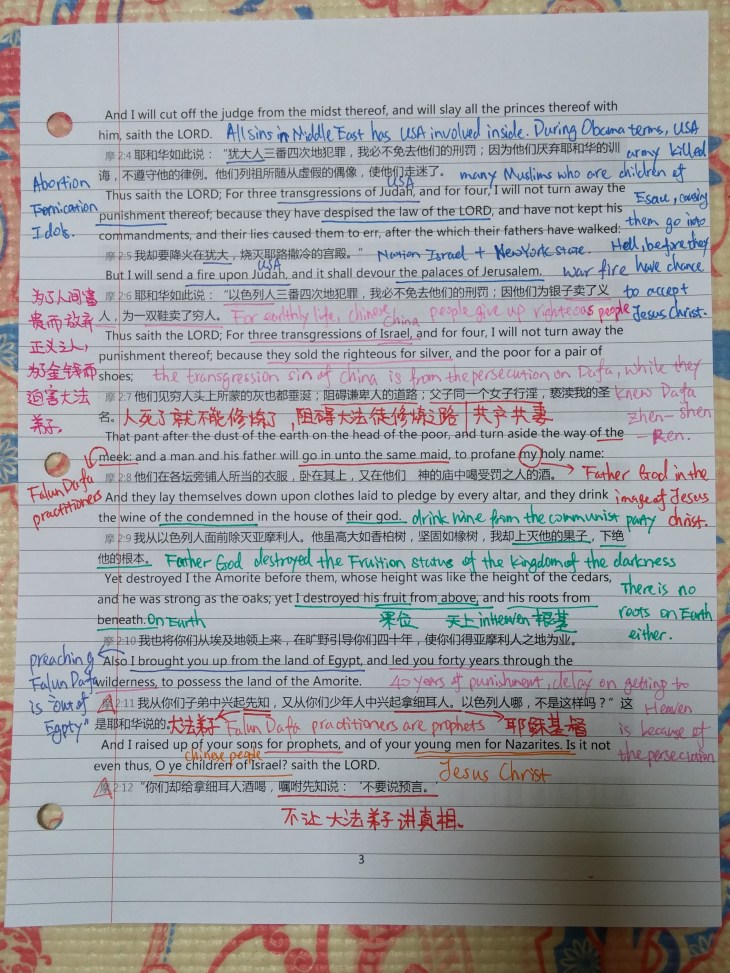 And I will cut off the judge from the midst thereof, and will slay all the princes thereof with
him, saith the LORD. All sins in Middle East has USA involved inside. During Obama terms, USA
摩 2:4 耶和华如此说：“犹大人三番四次地犯罪，我必不免去他们的刑罚；因为他们厌弃耶和华的训 army killed
诲，不遵守他的律例。他们列祖所随从虚假的偶像，使他们走迷了。 many Muslims who are children of
Abortion
Fornication
Idols.
USA
Thus saith the LORD; For three transgressions of Judah, and for four, I will not turn away the Esau, causing
punishment thereof; because they have despised the law of the LORD, and have not kept his them go into
commandments, and their lies caused them to err, after the which their fathers have walked: Hell, before they
摩 2:5 我却要降火在犹大，烧灭耶路撒冷的宫殿。” Nation Israel + New York state.
USA
But I will send a fire upon Judah, and it shall devour the palaces of Jerusalem. war fire have chance
to accept
Jesus Christ.
为了人间富
贵而放弃
正义之人，
为了金钱而
迫害大法
弟子。
摩 2:6 耶和华如此说：“以色列人三番四次地犯罪，我必不免去他们的刑罚；因他们为银子卖了义
人，为一双鞋卖了穷人。 For earthly life, chinese people give up righteous people
china
Thus saith the LORD; For three transgressions of Israel, and for four, I will not turn away the
punishment thereof; because they sold the righteous for silver, and the poor for a pair of
shoes; the transgression sin of china is from the persecution on Dafa, while they
摩 2:7 他们见穷人头上所蒙的灰也都垂涎；阻碍谦卑人的道路；父子同一个女子行淫，亵渎我的圣 knew Dafa
名。 人死了就不能修炼了，阻碍大法徒修炼之路 | 共产共妻 zhen-shen
-Ren.
That pant after the dust of the earth on the head of the poor, and turn aside the way of the
meek: and a man and his father will go in unto the same maid, to profane my holy name:
Falun Dafa
practitioners
摩 2:8 他们在各坛旁铺人所当的衣服，卧在其上，又在他们　神的庙中喝受罚之人的酒。 Father God in the
And they lay themselves down upon clothes laid to pledge by every altar, and they drink image of Jesus
the wine of the condemned in the house of their god. drink wine from the communist party christ.
摩 2:9 我从以色列人面前除灭亚摩利人。他虽高大如香柏树，坚固如橡树，我却上灭他的果子，下绝
他的根本。 Father God destroyed the Fruition status of the kingdom of the darkness
Yet destroyed I the Amorite before them, whose height was like the height of the cedars, There is no
and he was strong as the oaks; yet I destroyed his fruit from above, and his roots from roots on Earth
beneath. On Earth 果位 天上 in Heaven 根基 either.
摩 2:10 我也将你们从埃及地领上来，在旷野引导你们四十年，使你们得亚摩利人之地为业。
preaching
Falun Dafa
is "out of
Egpty"
Also I brought you up from the land of Egypt, and led you forty years through the
wilderness, to possess the land of the Amorite. 40 years of punishment, delay on getting to
Heaven
is because of
the persecution
摩 2:11 我从你们子弟中兴起先知，又从你们少年人中兴起拿细耳人。以色列人哪，不是这样吗？”这
是耶和华说的。 大法弟子 Falun Dafa practitioners are prophets 耶稣基督
And I raised up of your sons for prophets, and of your young men for Nazarites. Is it not
chinese people
even thus, O ye children of Israel? saith the LORD. Jesus Christ
摩 2:12 “你们却给拿细耳人酒喝，嘱咐先知说：‘不要说预言。’
不让大法弟子讲真相。
3